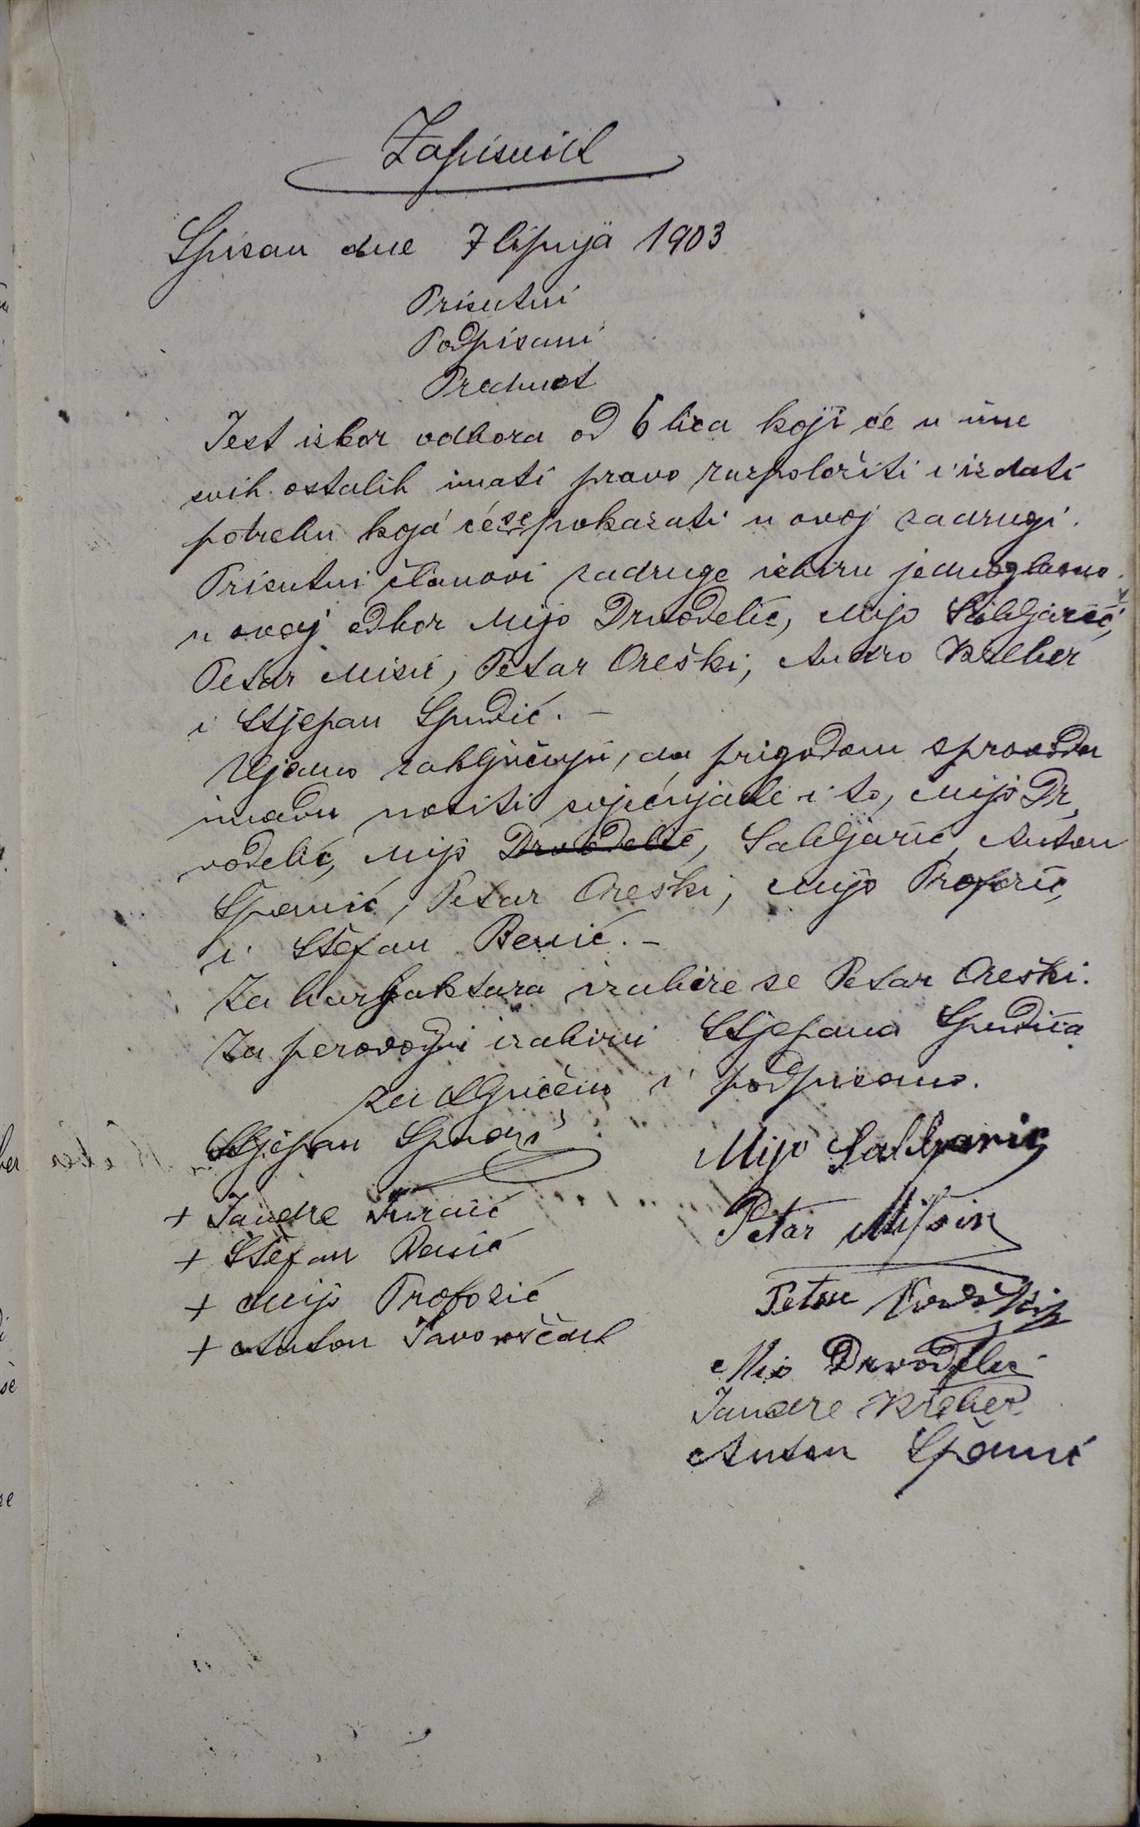 Zapisnik
Spisan dne 7 lipnja 1903
Prisutni
Podpisani
Predmet
Jest izbor odbora od 6 lica koji će u ime
svih ostalih imati pravo razpoložiti i izdati
potrebu koja će se pokazati u ovoj zadrugi.
Prisutni članovi zadruge izbiru jednoglasno
u ovaj odbor Mijo Drvodelić, Mijo Sabljarić,
Petar Misir, Petar Oreški, Andro Kreber
i Stjepan Spudić. —
Ujedno zaključuju, da prigodom sprovoda
imadu nositi svjećnjake i to, Mijo Dr
vodelić, Mijo Drvodelić, Sabljarić, Anton
Španić, Petar Oreški, Mijo Profozić,
i Štefan Benić. —
Za barjaktara izabire se Petar Oreški.
Za perovodju izabiru Stjepana Spudića
zaključeno i podpisano.
Stjepan Spudić
Mijo Sabljarić
+ Jandre Jurčić
Petar Misir
+ Štefan Benić
+ Mijo Profozić
Petar
+ Anton Javorščak
Mio Drvodelić
Jandre Kreber
Anton Španić